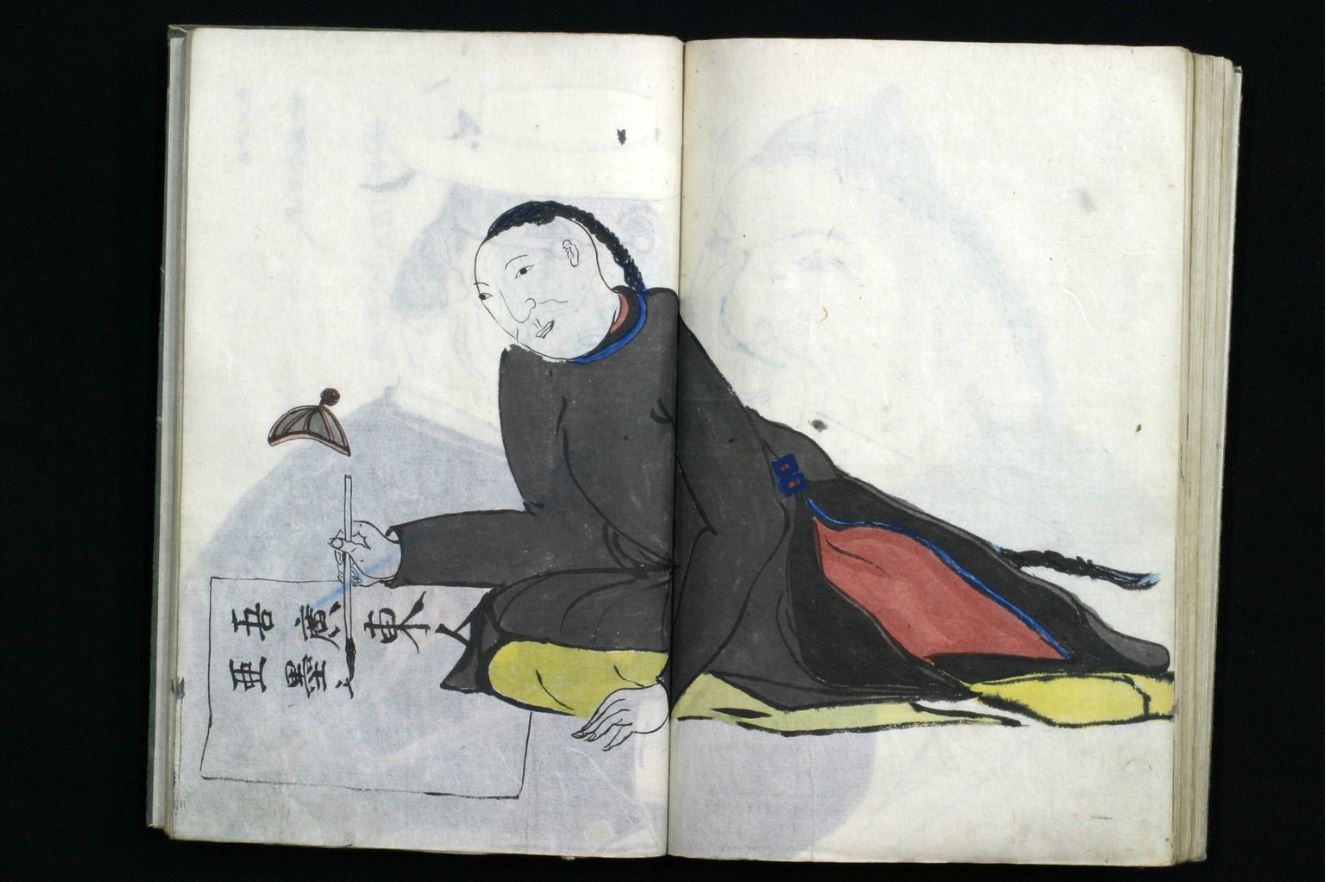 吾廣東人
亜墨